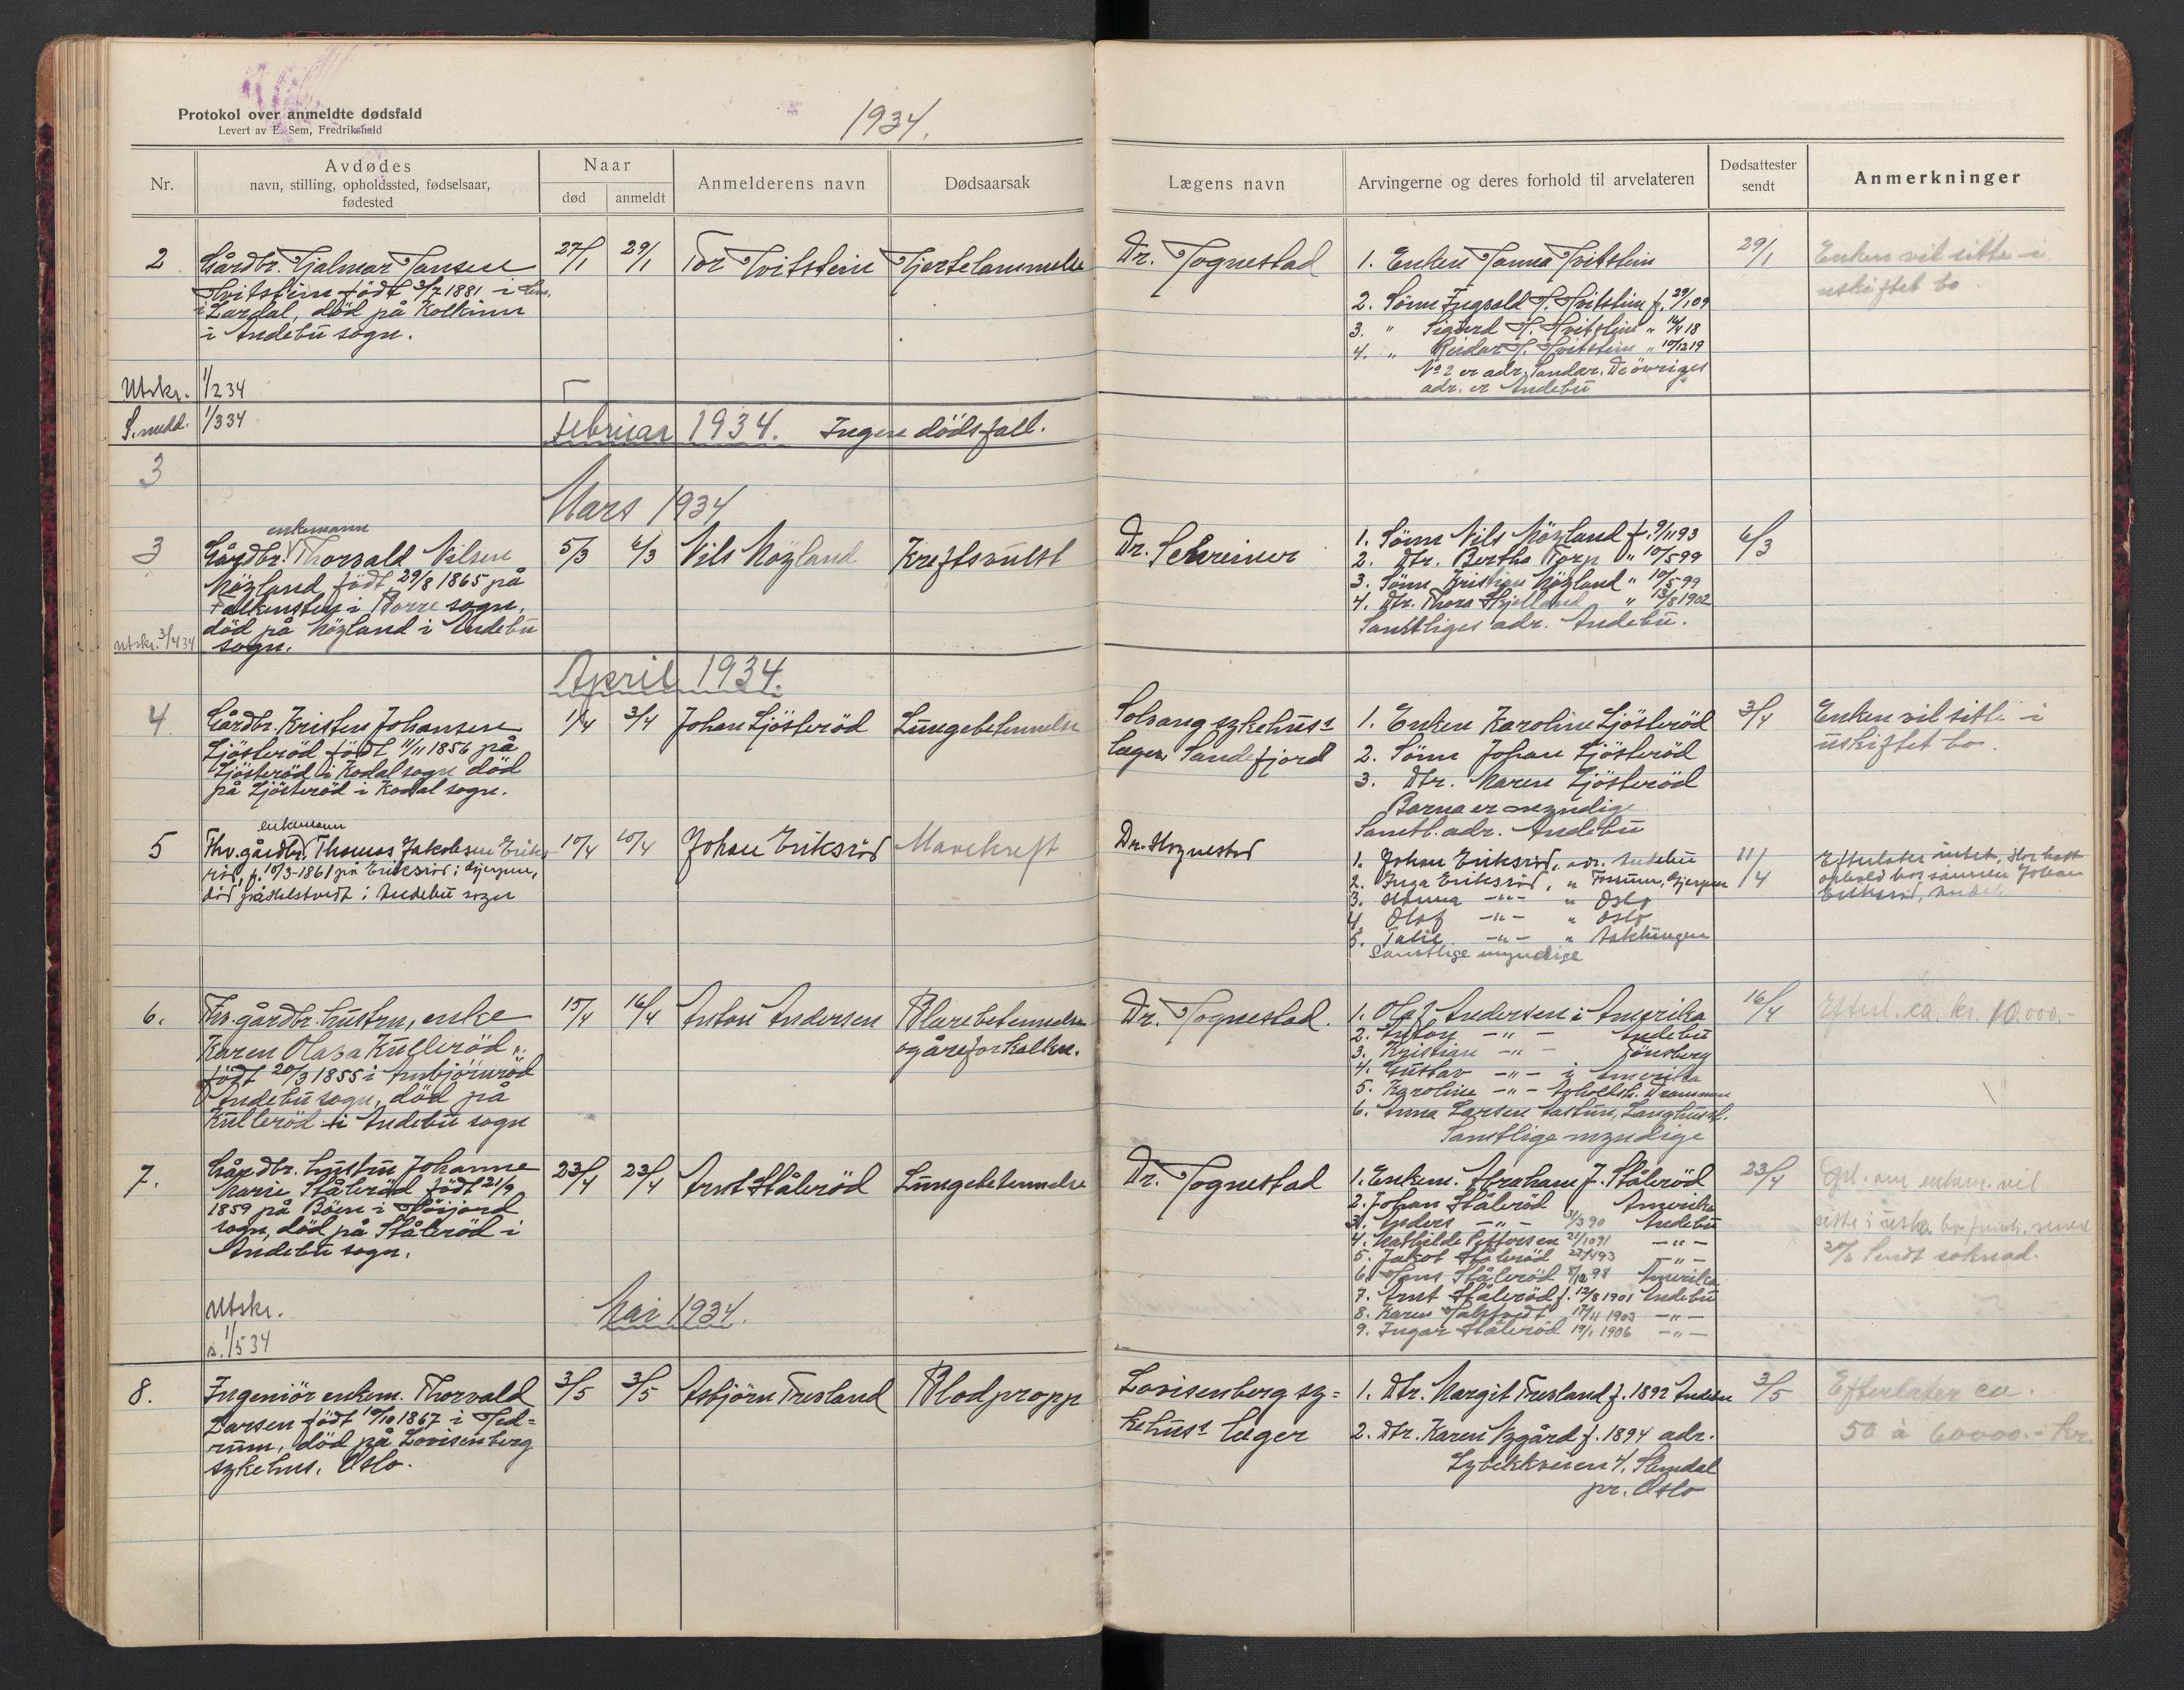 Protokol over anmeldte dødsfald
Levert av E. Sem, Fredrikshald
1934.
Nr.
Avdødes
navn, stilling, opholdssted, fødselsaar,
fødested
Naar
død
anmeldt
Anmelderens navn
Dødsaarsak
Lægens navn
Arvingerne og deres forhold til arvelateren
Dødsattester
sendt
Anmerkninger
2
Gårdbr. Hjalmar Hansen
Hvitstein födt 3/7 1881 i
i Lardal, död på Kolkinn
i Andebu sogn.
27/1
29/1
Tor Hvitstein
Hjertelammelse
Dr. Hognestad
1. Enken Hanna Hvitstein
2. Sönn Ingvald H. Hvitstein f. 29/1 09
3. " Sigurd H. Hvitstein " 14/4 18
4. " Reidar H. Hvitstein " 10/12 19
No 2 er adr. Sandar. De övriges
adr. er Andebu
29/1
Enken vil sitte i
uskiftet bo.
Utskr. 1/2 34
S. medd. 1/3 34
Februar 1934. Ingen dödsfall.
3
Mars 1934
3
enkemann
Gårdbr. Thorvald Nilsen
Möyland födt 29/8 1865 på
Falkensten i Borre sogn,
död på Möyland i Andebu
sogn.
Utskr. 3/4 34
5/3
6/3
Nils Möyland
Kreftsvulst
Dr. Schreiner
1. Sönn Nils Möyland f. 9/11 93
2. Dtr. Bertha Torp " 10/5 99
3. Sönn Kristian Möyland " 10/5 99
4. Dtr. Thora Skjelland " 13/8 1902
Samtliges adr. Andebu.
6/3
April 1934.
4
Gårdbr. Kristen Johansen
Ljösteröd födt 11/11 1856 på
Ljösteröd i Kodal sogn död
på Ljösteröd i Kodal sogn.
1/4
3/4
Johan Ljösteröd
Lungebetennelse
Solvang sykehus
læger Sandefjord
1. Enken Karoline Ljösteröd
2. Sönn Johan Ljösteröd
3. Dtr. Maren Ljösteröd
Barna er myndige
Samtl. adr. Andebu
3/4
Enken vil sitte i
uskiftet bo.
5
enkemann
Fhv. gårdbr. Thomas Jakobsen Eriks
röd, f. 10/3-1861 på Eriksröd i Gjerpen,
död på Helstvedt i Andebu sogn
10/4
10/4
Johan Eriksröd
Mavekreft
Dr. Hognestad
1. Johan Eriksröd, adr. Andebu
2. Inga Eriksröd, " Fossum, Gjerpen
3. Hanna -"- " Oslo
4. Olaf -"- " Oslo
5. -"- "
Samtlige myndige
11/4
Efterlater intet. Har hatt
ophold hos sönnen Johan
Eriksröd, Andebu
6.
Fhv. gårdbr. hustru, enke
Karen Olava Kulleröd
födt 20/3 1855 i Anbjörnröd
Andebu sogn, död på
Kulleröd i Andebu sogn
15/4
16/4
Anton Andersen
Blærebetennelse
og åreforkalkn.
Dr. Hognestad.
1. Olaf Andersen i Amerika
2. Anton -"- Andebu
3. Kristian -"- Tönsberg
4. Gustav -"- i Amerika
5. Karoline -"- Drammen
6. Anna Larsen
Samtlige myndige
16/4
Efterl. ca. kr. 10.000.-
7.
Gårdbr. hustru Johanne
Marie Ståleröd födt 21/9
1859 på Böen i Höijord
sogn, död på Ståleröd i
Andebu sogn.
23/4
23/4
Arnt Ståleröd
Lungebetennelse
Dr. Hognestad
1. Enkem. Abraham J. Ståleröd
2. Johan Ståleröd Amerika
3. Anders -"- 31/3 90 Andebu
4. Mathilde Pettersen 21/10 91 -"-
5. Jakob Ståleröd 93 -"-
6. Hans Ståleröd 8/12 98 Amerika
7. Arnt Ståleröd f. 12/8 1901 Andebu
8. Karen 17/11 1903 -"-
9. Ingar Ståleröd 19/1 1906 -"-
23/4
om enkem. vil
sitte i usk. bo
Sendt söknad.
Utskr.
s. 1/5 34
Mai 1934.
8.
Ingeniör enkem. Thorvald
Larsen födt 10/10 1867 i Hed=
rum, död på Lovisenberg
sykehus, Oslo.
3/5
3/5
Asbjörn Tresland
Blodpropp
Lovisenberg sy=
kehus læger
1. Dtr. Margit Tresland f. 1892 Andebu
2. Dtr. Karen Nygård f. 1894 adr.
Lybekkveien 4. Slemdal
pr. Oslo
3/5
Efterlater ca.
50 à 60000.- kr.